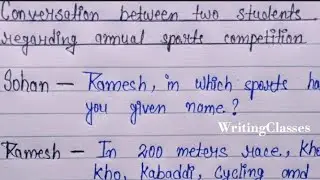 Conversation between two students
regarding annual sports competition
Sohan – Ramesh, in which sports ha
you given name?
WritingClasses
Ramesh – In 200 meters race, kho
kho, kabaddi, cycling and